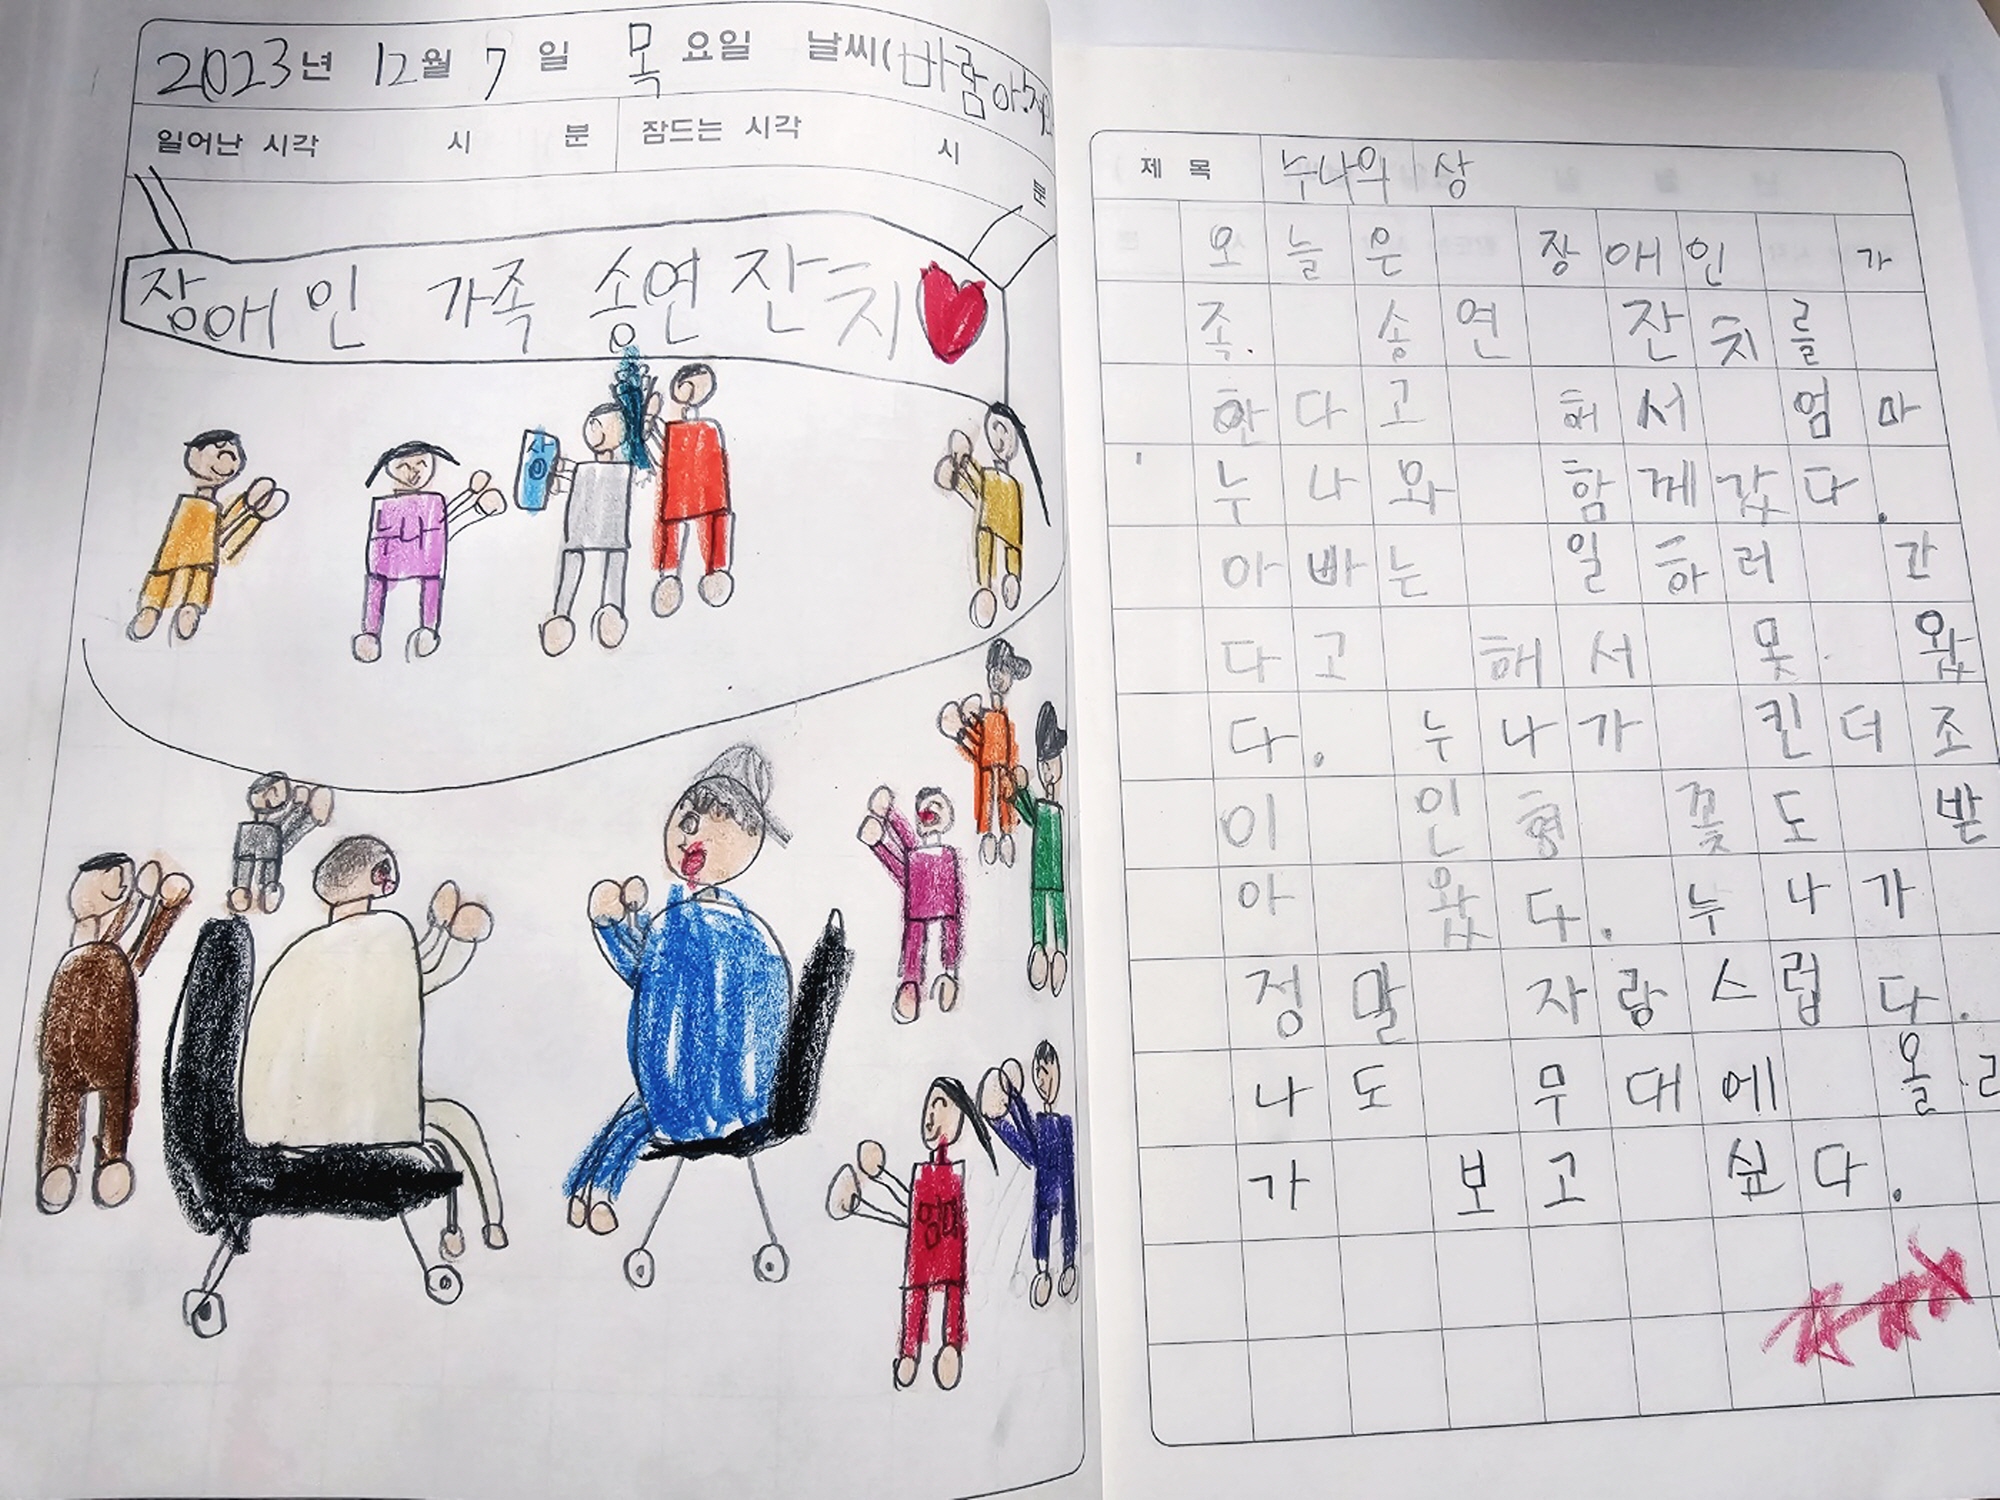 2023년 12월 7일 목요일 날씨(바람아!
일어난 시각 시 분 잠드는 시각 시 분
장애인 가족 송연 잔치
상
누나
엄마
제 목 누나의 상
오늘은 장애인 가
족. 송연 잔치를
한다고 해서 엄마
누나와 함께갔다.
아빠는 일하러 간
다고 해서 못 왔
다. 누나가 킨더조
이 인형 꽃도 받
아 왔다. 누나가
정말 자랑스럽다.
나도 무대에 올라
가 보고 싶다.